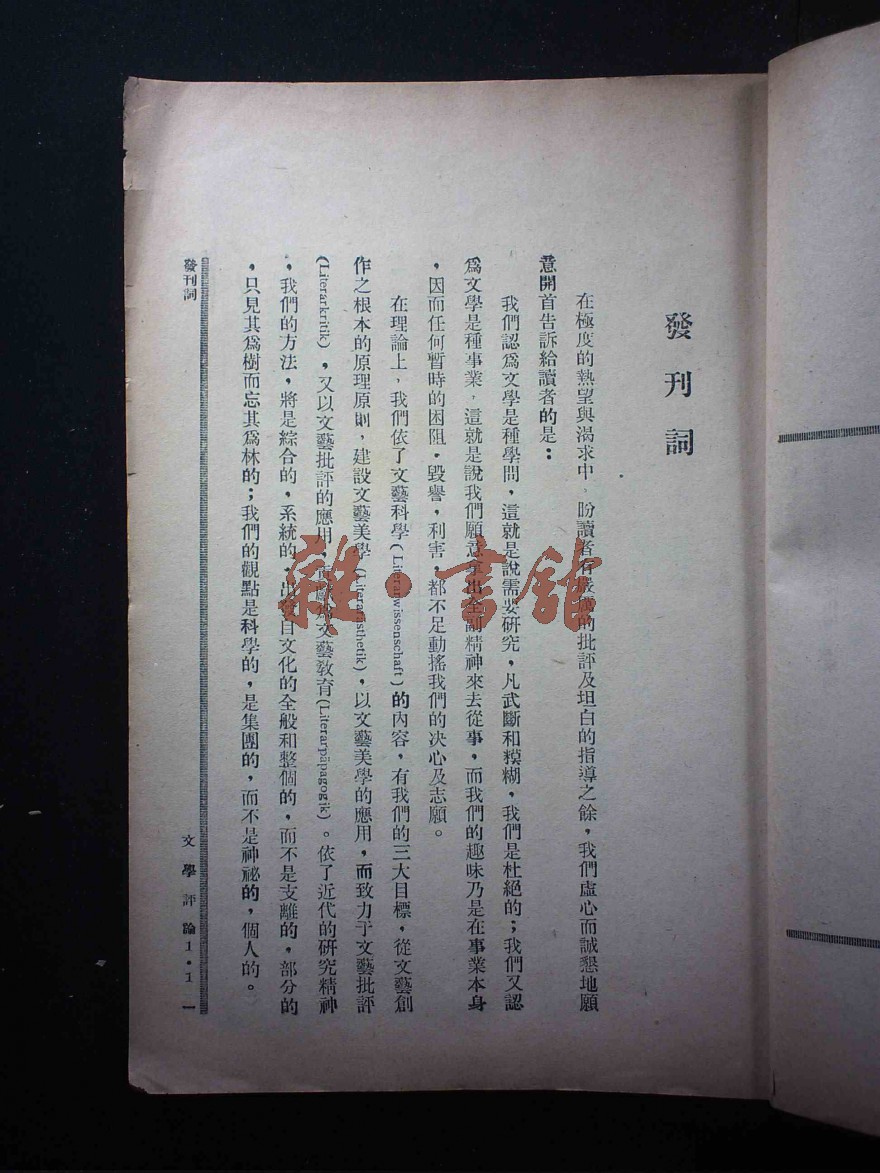 發刊詞
在極度的熱望與渴求中，盼讀者有嚴厲的批評及坦白的指導之餘，我們虛心而誠懇地願
意開首告訴給讀者的是：
我們認爲文學是種學問，這就是說需要研究，凡武斷和糢糊，我們是杜絕的；我們又認
爲文學是種事業，這就是說我們願意拿出全副精神來去從事，而我們的趣味乃是在事業本身
，因而任何暫時的困阻，毀譽，利害，都不足動搖我們的决心及志願。
在理論上，我們依了文藝科學(Literarwissenschaft)的內容，有我們的三大目標，從文藝創
作之根本的原理原則，建設文藝美學(Literarästhetik)，以文藝美學的應用，而致力于文藝批評
(Literarkritik)，又以文藝批評的應用，文藝敎育(Literarpäpagogik)。依了近代的研究精神
，我們的方法，將是綜合的，系統的，出發自文化的全般和整個的，而不是支離的，部分的
，只見其爲樹而忘其爲林的；我們的觀點是科學的，是集團的，而不是神祕的，個人的。
發刊詞
文學評論 1．1 一
雜·書館